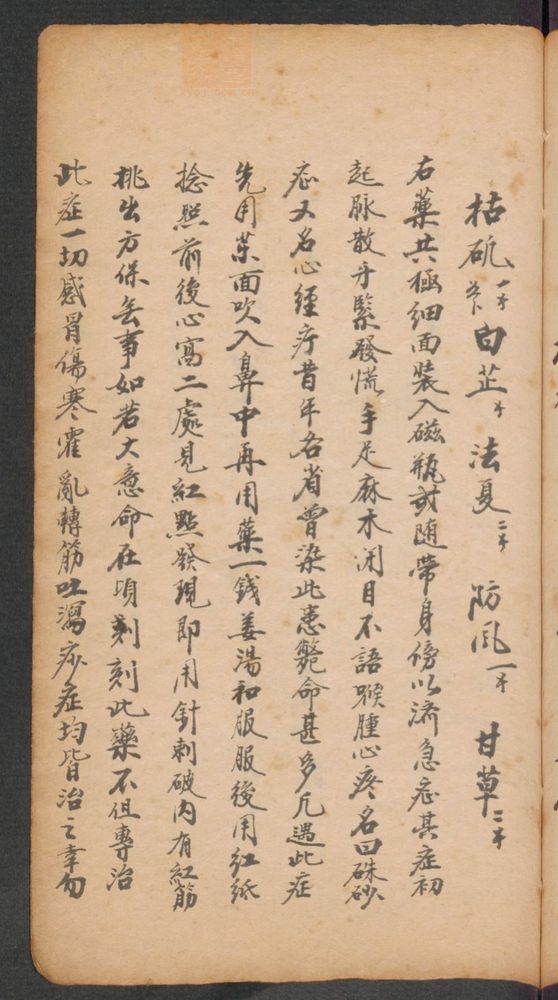 枯矾一 白芷 法夏二 防风一 甘草二
右藥共極細面裝入磁瓶或随帶身傍以济急症其症初
起脉散牙緊發慌手足麻木闭目不語喉腫心疼名曰硃砂
症又名心经疔昔年各省曾染此患斃命甚多凡遇此症
先用藥面吹入鼻中再用藥一錢姜湯和服服後用红纸
捻照前後心窩二處見紅點發現即用針刺破内有紅筋
挑出方保無事如若大意命在頃刻刻此藥不但專治
此症一切感冒傷寒霍亂轉筋吐瀉痧症均皆治之幸勿